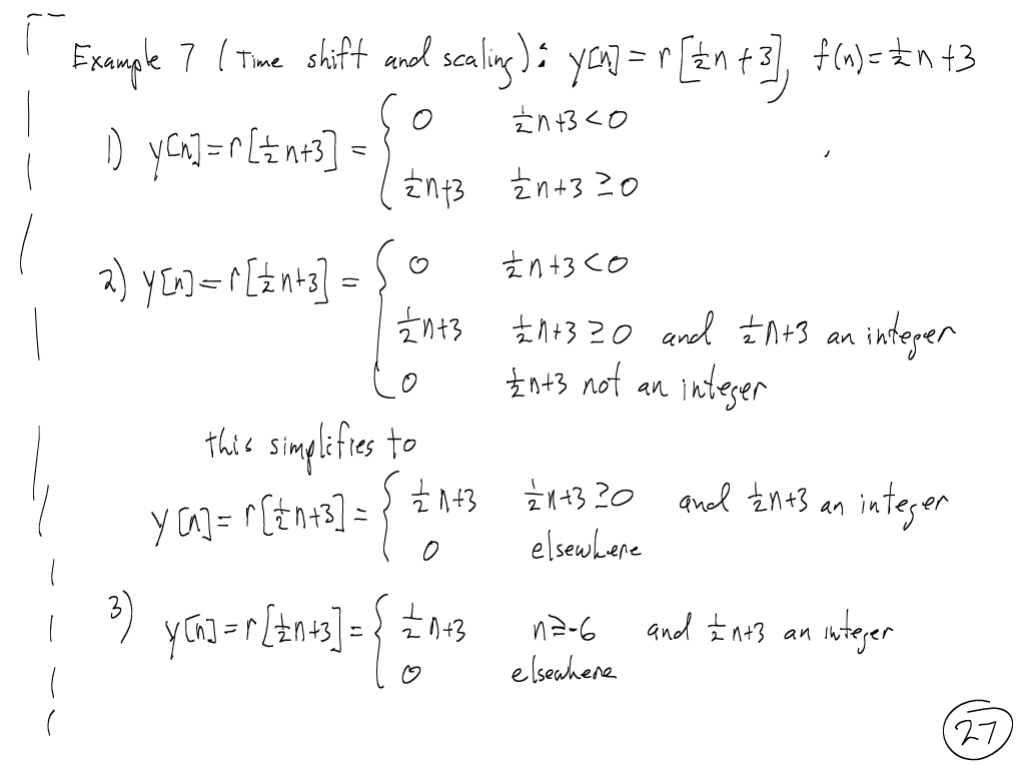 Example 7 (Time shift and scaling): y[n] = r[½n+3], f(n) = ½n+3
1) y[n] = r[½n+3] = { 0 ½n+3 < 0
½n+3 ½n+3 ≥ 0
2) y[n] = r[½n+3] = { 0 ½n+3 < 0
½n+3 ½n+3 ≥ 0 and ½n+3 an integer
0 ½n+3 not an integer
this simplifies to
y[n] = r[½n+3] = { ½n+3 ½n+3 ≥ 0 and ½n+3 an integer
0 elsewhere
3) y[n] = r[½n+3] = { ½n+3 n ≥ -6 and ½n+3 an integer
0 elsewhere
27